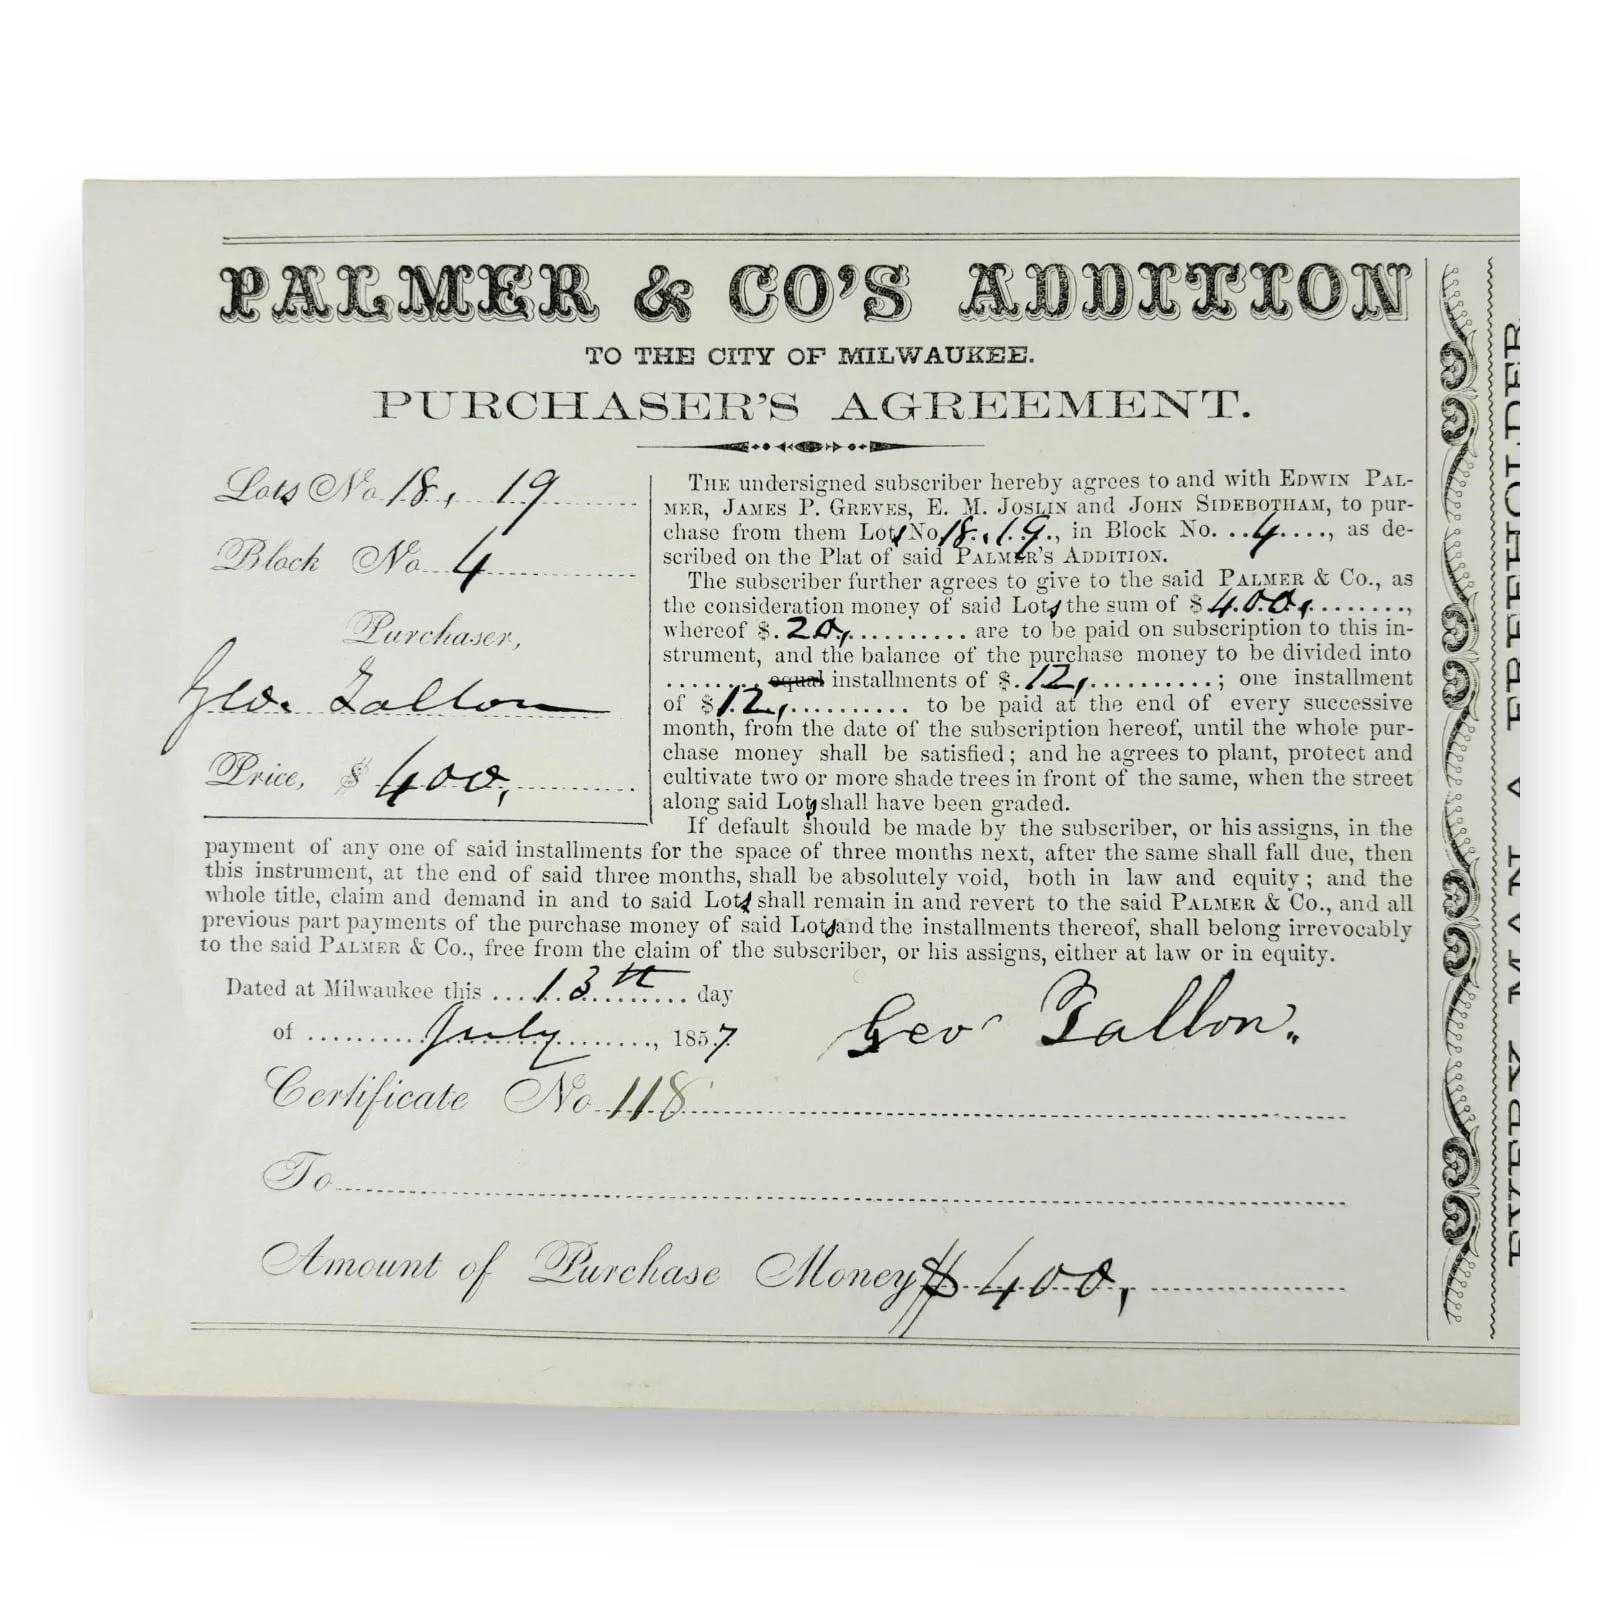 PALMER & CO'S ADDITION
TO THE CITY OF MILWAUKEE.
PURCHASER'S AGREEMENT.
Lots No 18, 19
Block No 4
Purchaser,
Geo. Fallon
Price, $ 400,
THE undersigned subscriber hereby agrees to and with EDWIN PAL-
MER, JAMES P. GREVES, E. M. JOSLIN and JOHN SIDEBOTHAM, to pur-
chase from them Lots No 18, 19, in Block No. 4, as de-
scribed on the Plat of said PALMER'S ADDITION.
The subscriber further agrees to give to the said PALMER & CO., as
the consideration money of said Lots the sum of $ 400,
whereof $. 20, are to be paid on subscription to this in-
strument, and the balance of the purchase money to be divided into
equal installments of $. 12, ; one installment
of $ 12, to be paid at the end of every successive
month, from the date of the subscription hereof, until the whole pur-
chase money shall be satisfied; and he agrees to plant, protect and
cultivate two or more shade trees in front of the same, when the street
along said Lots shall have been graded.
If default should be made by the subscriber, or his assigns, in the
payment of any one of said installments for the space of three months next, after the same shall fall due, then
this instrument, at the end of said three months, shall be absolutely void, both in law and equity; and the
whole title, claim and demand in and to said Lots shall remain in and revert to the said PALMER & CO., and all
previous part payments of the purchase money of said Lots and the installments thereof, shall belong irrevocably
to the said PALMER & CO., free from the claim of the subscriber, or his assigns, either at law or in equity.
Dated at Milwaukee this 13th day
of July, 1857
Geo Fallon.
Certificate No 118
To
Amount of Purchase Money $ 400,
EVERY MAN A FREEHOLDER